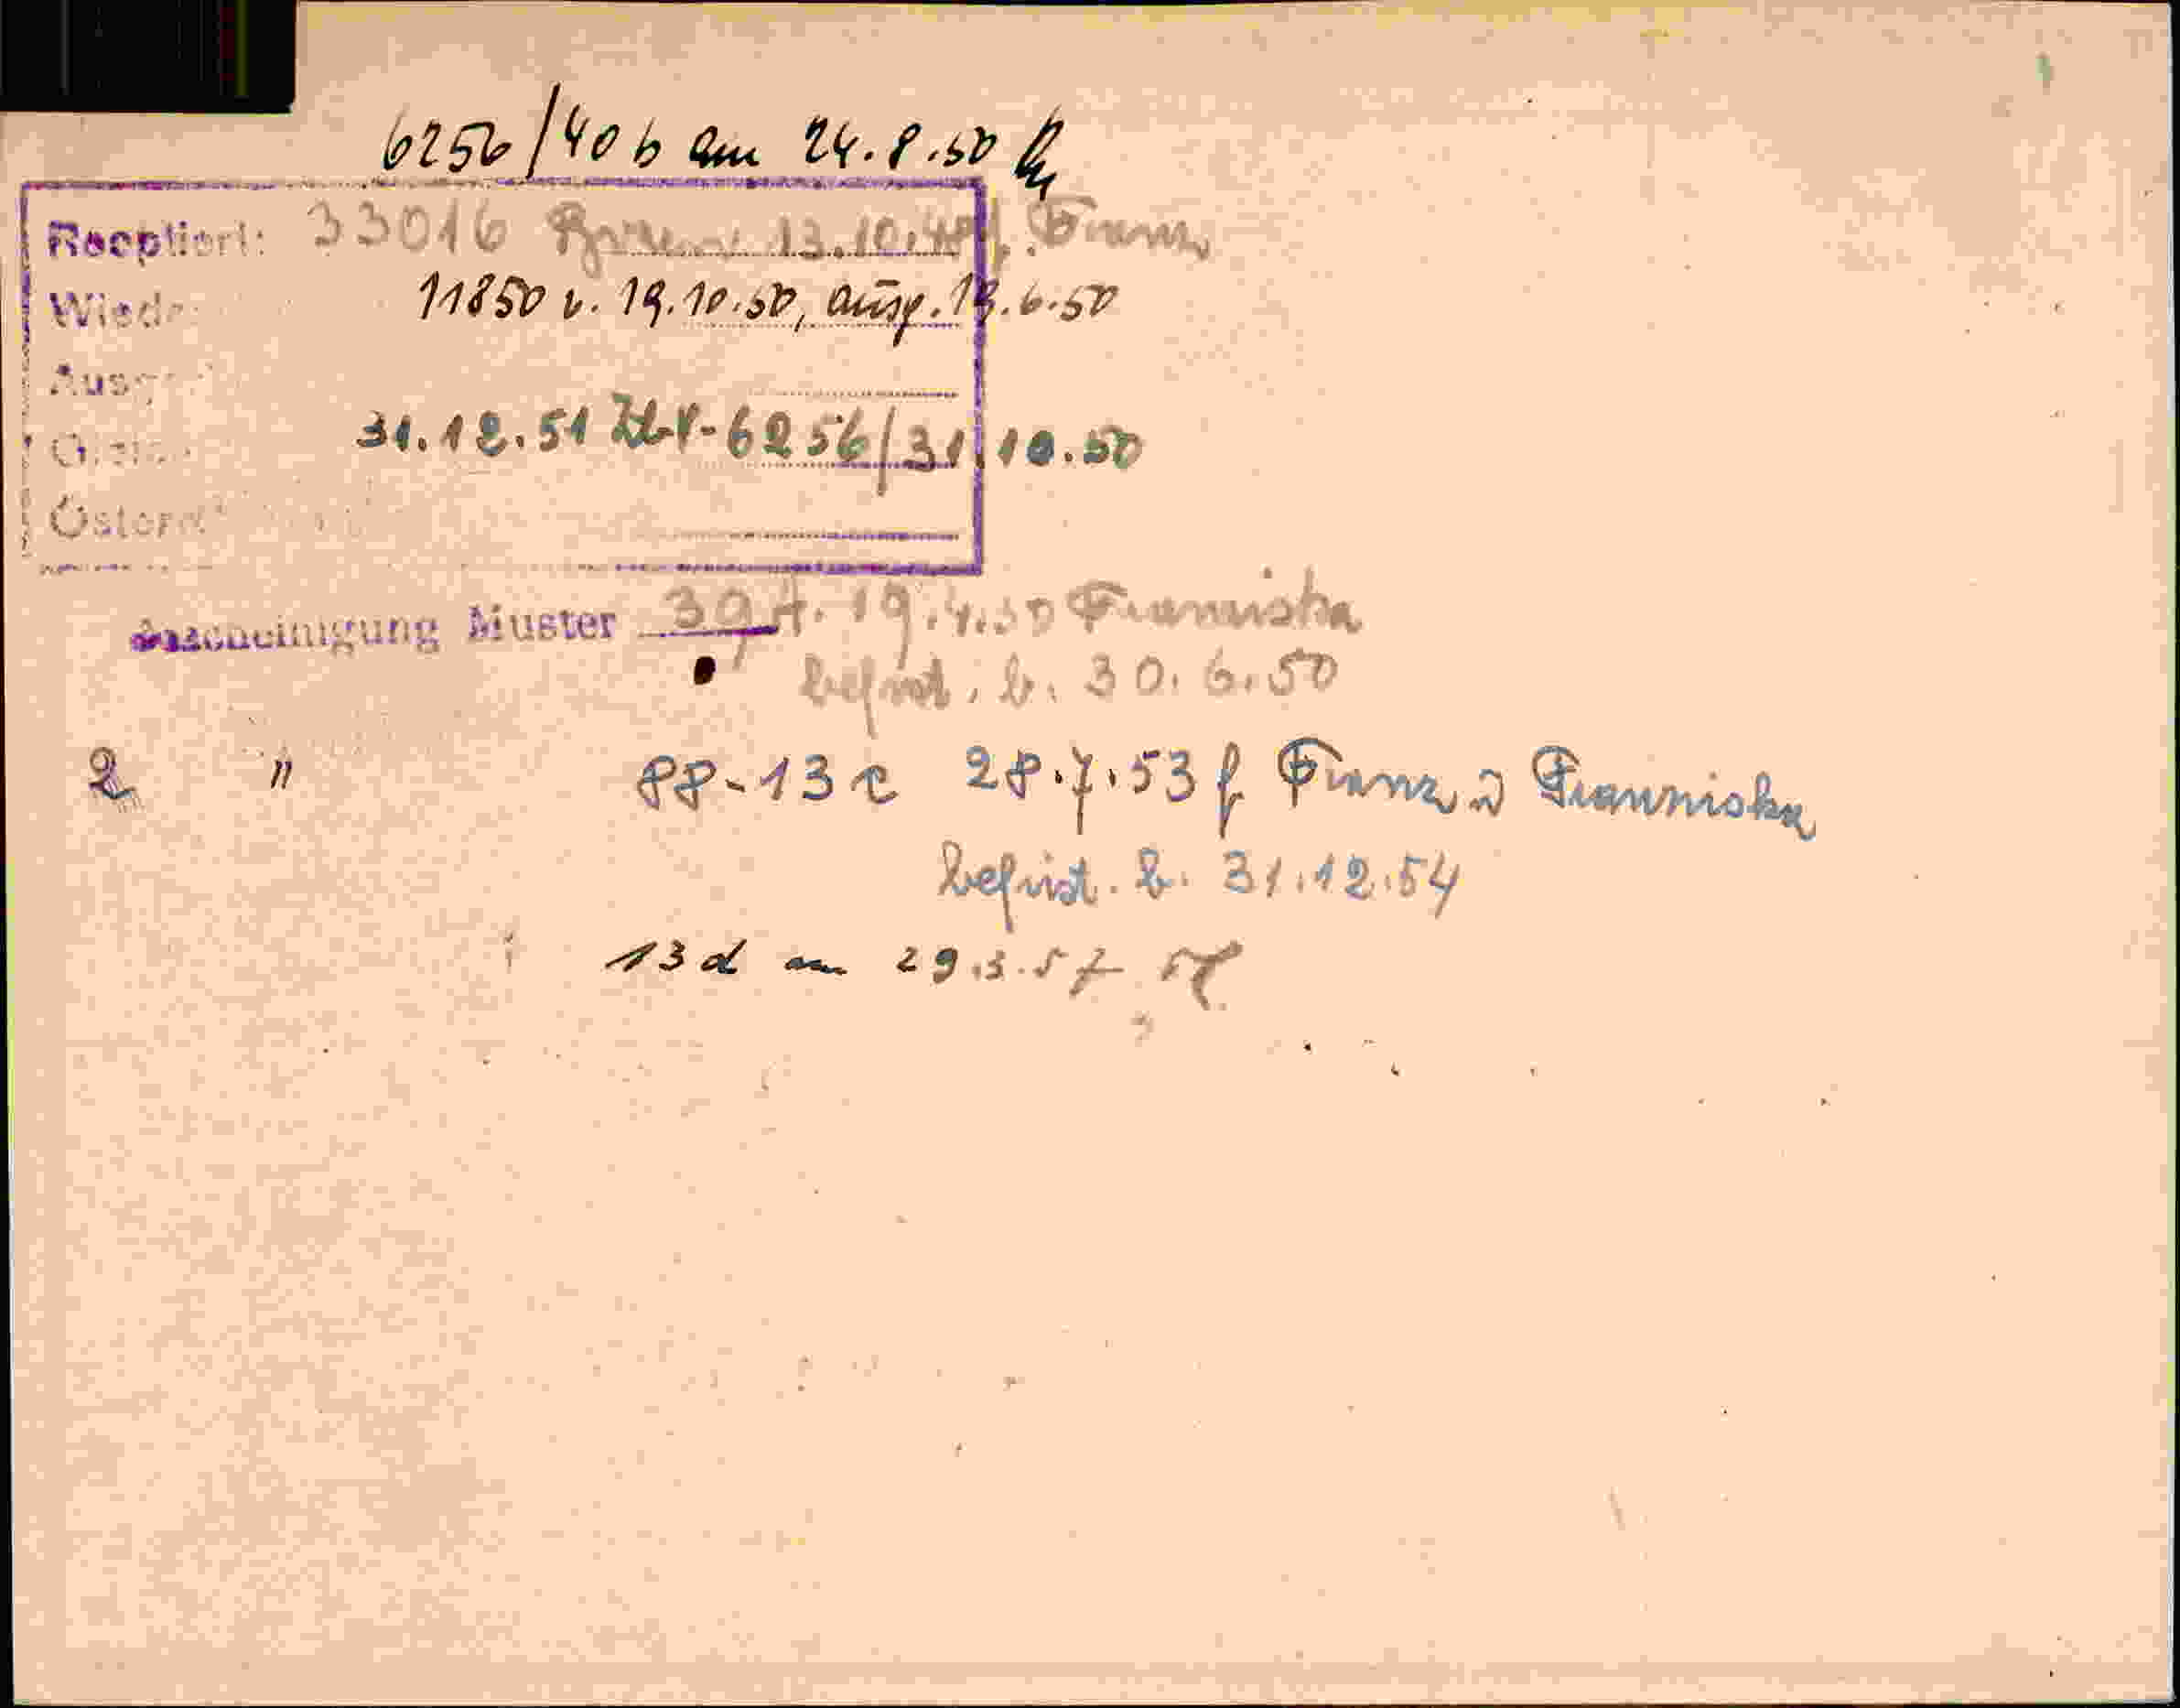 6256/40 b am 24.8.50
Reoptiert: 33016 Bozen 13.10.49 f. Franz
11850 v. 19.10.50, ausg. 19.6.50
31.12.51 6256/31.10.50
Bescheinigung Muster 39 f. 19.4.50 Franziska
befrist. b. 30.6.50
2 " 88-13 c 28.7.53 f Franz u Franziska
befrist. b. 31.12.54
13 d am 29.3.57